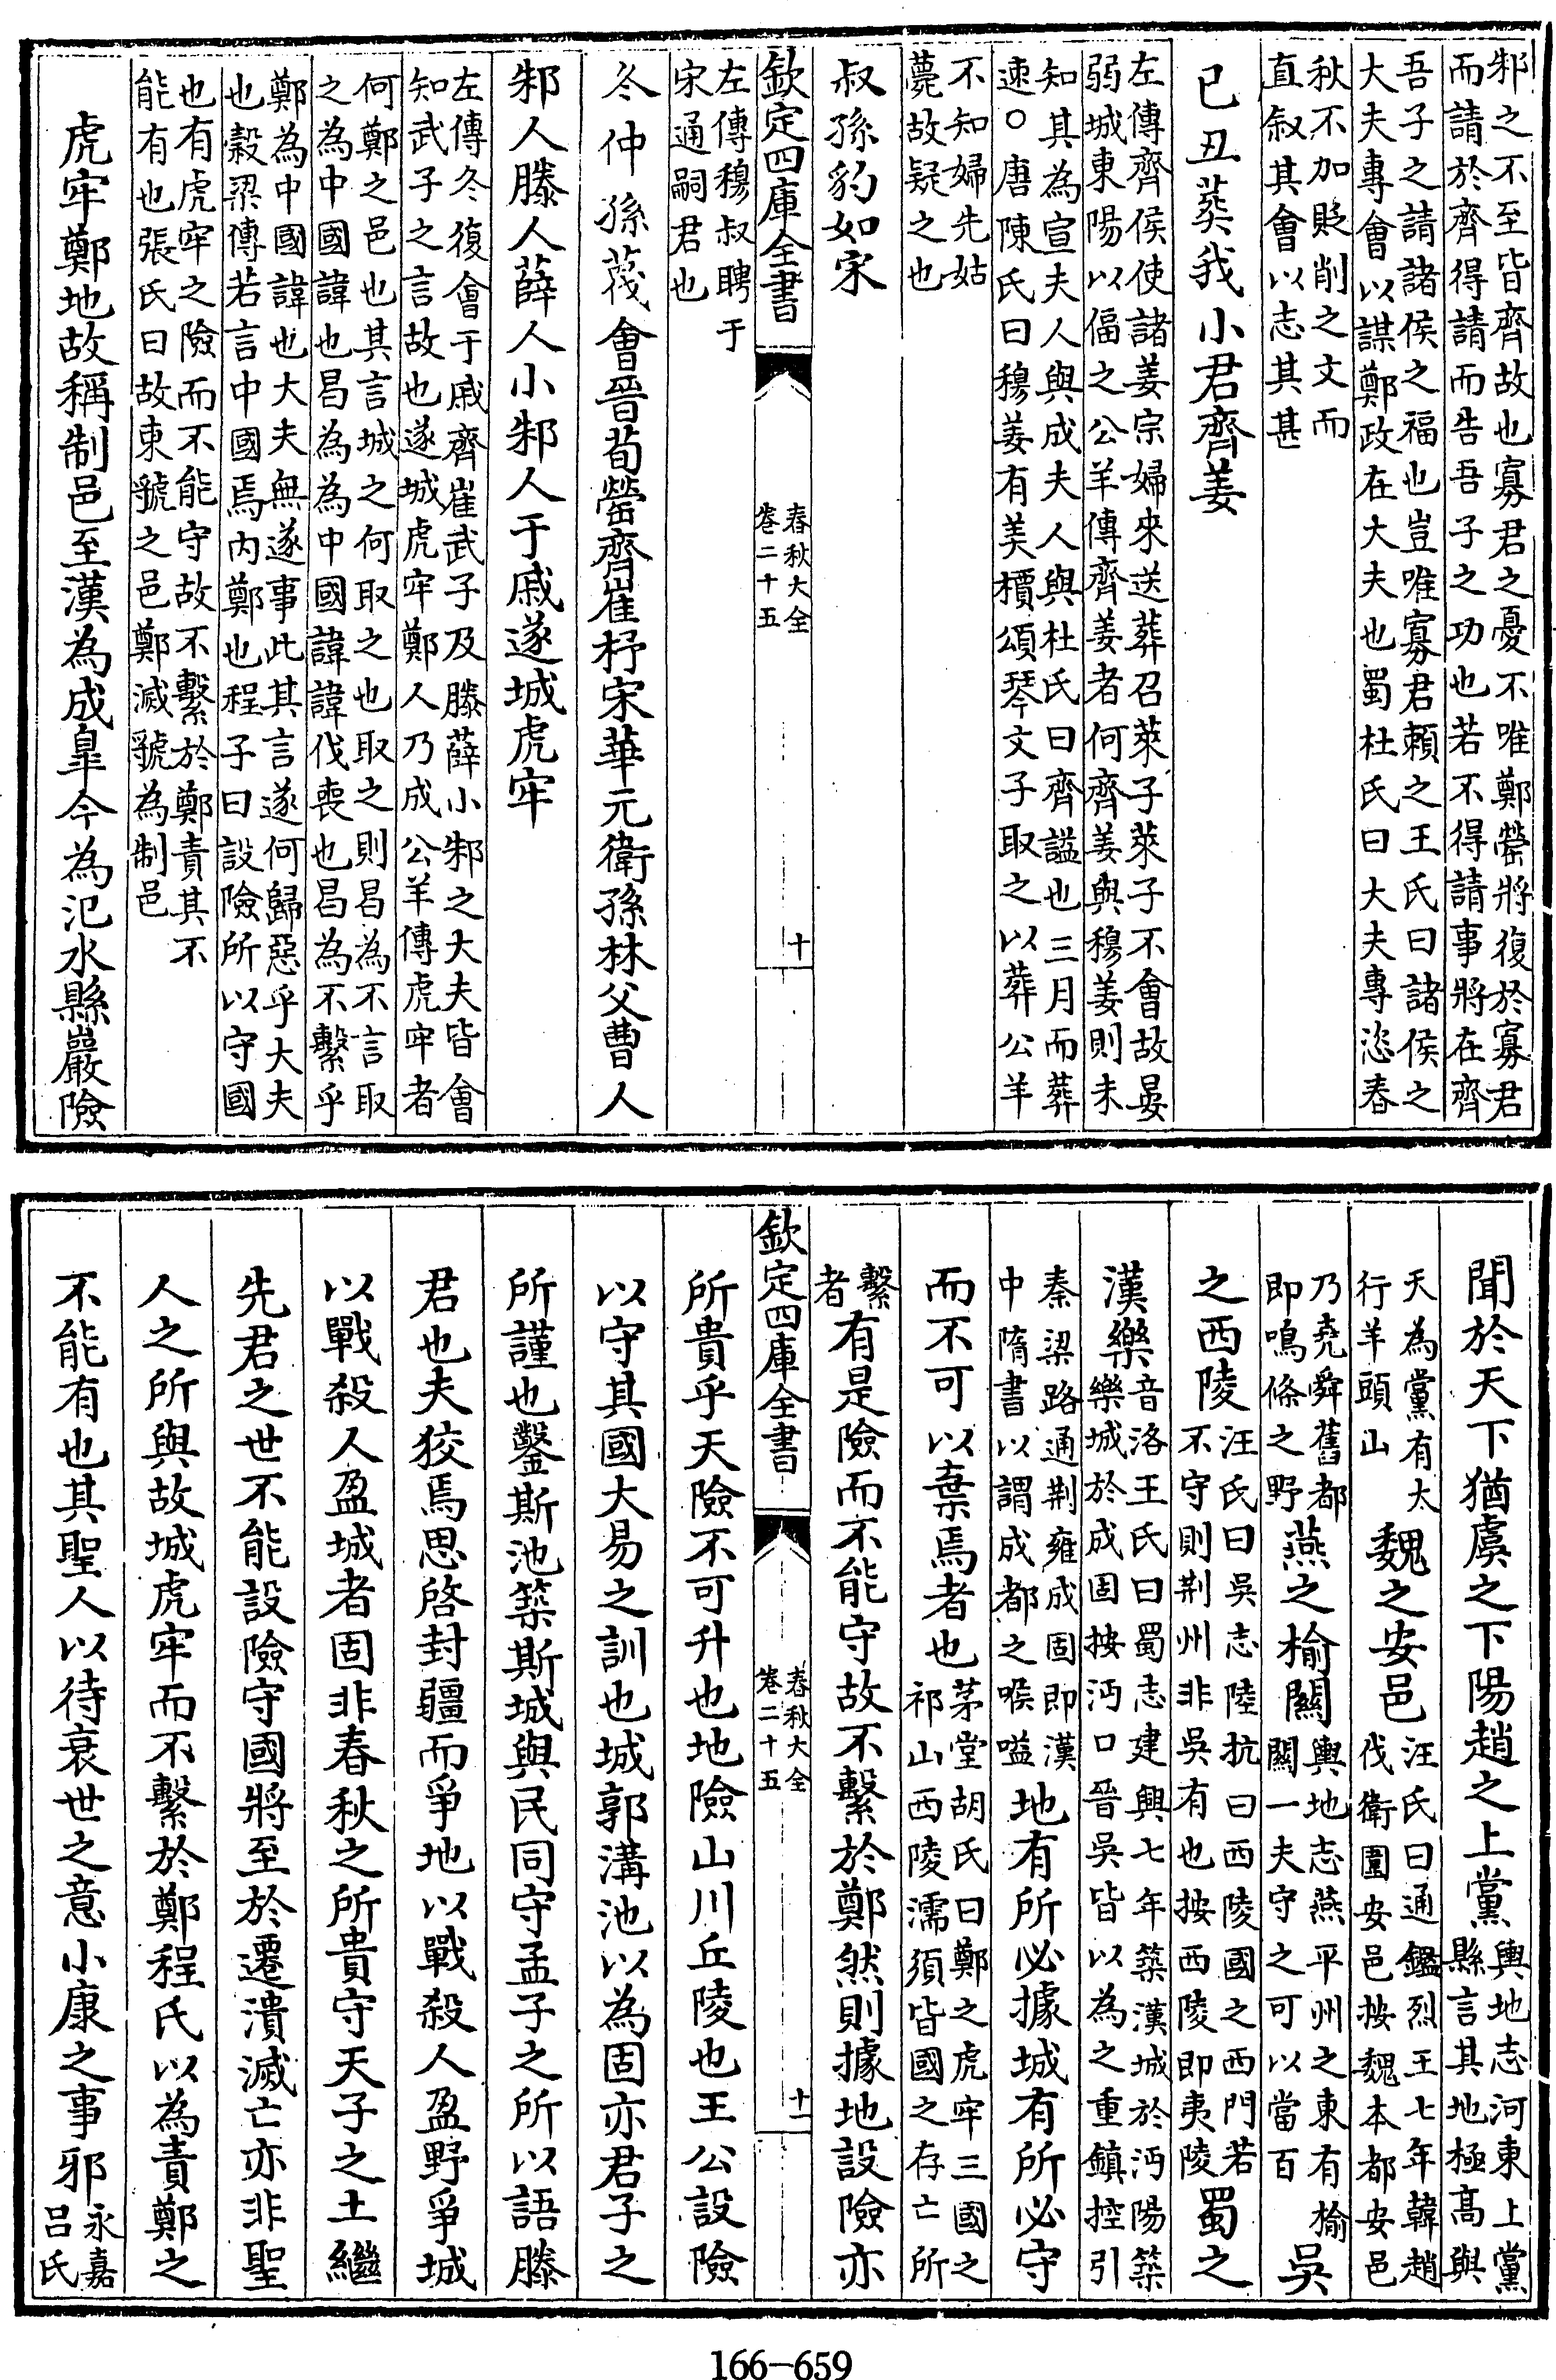 邾之不至皆齊故也寡君之憂不唯鄭罃將復於寡君
而請於齊得請而告吾子之功也若不得請事將在齊
吾子之請諸侯之福也豈唯寡君賴之王氏曰諸侯之
大夫專會以謀鄭政在大夫也蜀杜氏曰大夫專恣春
秋不加貶削之文而
直叙其會以志其甚
已丑葬我小君齊姜
左傳齊侯使諸姜宗婦來送葬召萊子萊子不會故晏
弱城東陽以偪之公羊傳齊姜者何齊姜與穆姜則未
知其為宣夫人與成夫人與杜氏曰齊諡也三月而葬
速○唐陳氏曰穆姜有美檟頌琴文子取之以葬公羊
不知婦先姑
薨故疑之也
叔孫豹如宋
欽定四庫全書
春秋大全
卷二十五
十
左傳穆叔聘于
宋通嗣君也
冬仲孫蔑會晉荀罃齊崔杼宋華元衛孫林父曹人
邾人滕人薛人小邾人于戚遂城虎牢
左傳冬復會于戚齊崔武子及滕薛小邾之大夫皆會
知武子之言故也遂城虎牢鄭人乃成公羊傳虎牢者
何鄭之邑也其言城之何取之也取之則昌為不言取
之為中國諱也昌為為中國諱諱伐喪也昌為不繫乎
鄭為中國諱也大夫無遂事此其言遂何歸惡乎大夫
也穀梁傳若言中國焉内鄭也程子曰設險所以守國
也有虎牢之險而不能守故不繫於鄭責其不
能有也張氏曰故東虢之邑鄭滅虢為制邑
虎牢鄭地故稱制邑至漢為成皐今為汜水縣巖險
聞於天下猶虞之下陽趙之上黨
輿地志河東上黨
縣言其地極高與
天為黨有太
行羊頭山
魏之安邑
汪氏曰通鑑烈王七年韓趙
伐衛圍安邑按魏本都安邑
乃堯舜舊都
即鳴條之野
燕之榆關
輿地志燕平州之東有榆
關一夫守之可以當百
吳
之西陵
汪氏曰吳志陸抗曰西陵國之西門若
不守則荆州非吳有也按西陵即夷陵
蜀之
漢樂
音洛王氏曰蜀志建興七年築漢城於沔陽築
樂城於成固按沔口晉吳皆以為之重鎮控引
秦梁路通荆雍成固即漢
中隋書以謂成都之喉嗌
地有所必據城有所必守
而不可以棄焉者也
茅堂胡氏曰鄭之虎牢三國之
祁山西陵濡須皆國之存亡所
繫
者
有是險而不能守故不繫於鄭然則據地設險亦
欽定四庫全書
春秋大全
卷二十五
十一
所貴乎天險不可升也地險山川丘陵也王公設險
以守其國大易之訓也城郭溝池以為固亦君子之
所謹也鑿斯池築斯城與民同守孟子之所以語滕
君也夫狡焉思啓封疆而爭地以戰殺人盈野爭城
以戰殺人盈城者固非春秋之所貴守天子之土繼
先君之世不能設險守國將至於遷潰滅亡亦非聖
人之所與故城虎牢而不繫於鄭程氏以為責鄭之
不能有也其聖人以待衰世之意小康之事邪
永嘉
呂氏
166-659